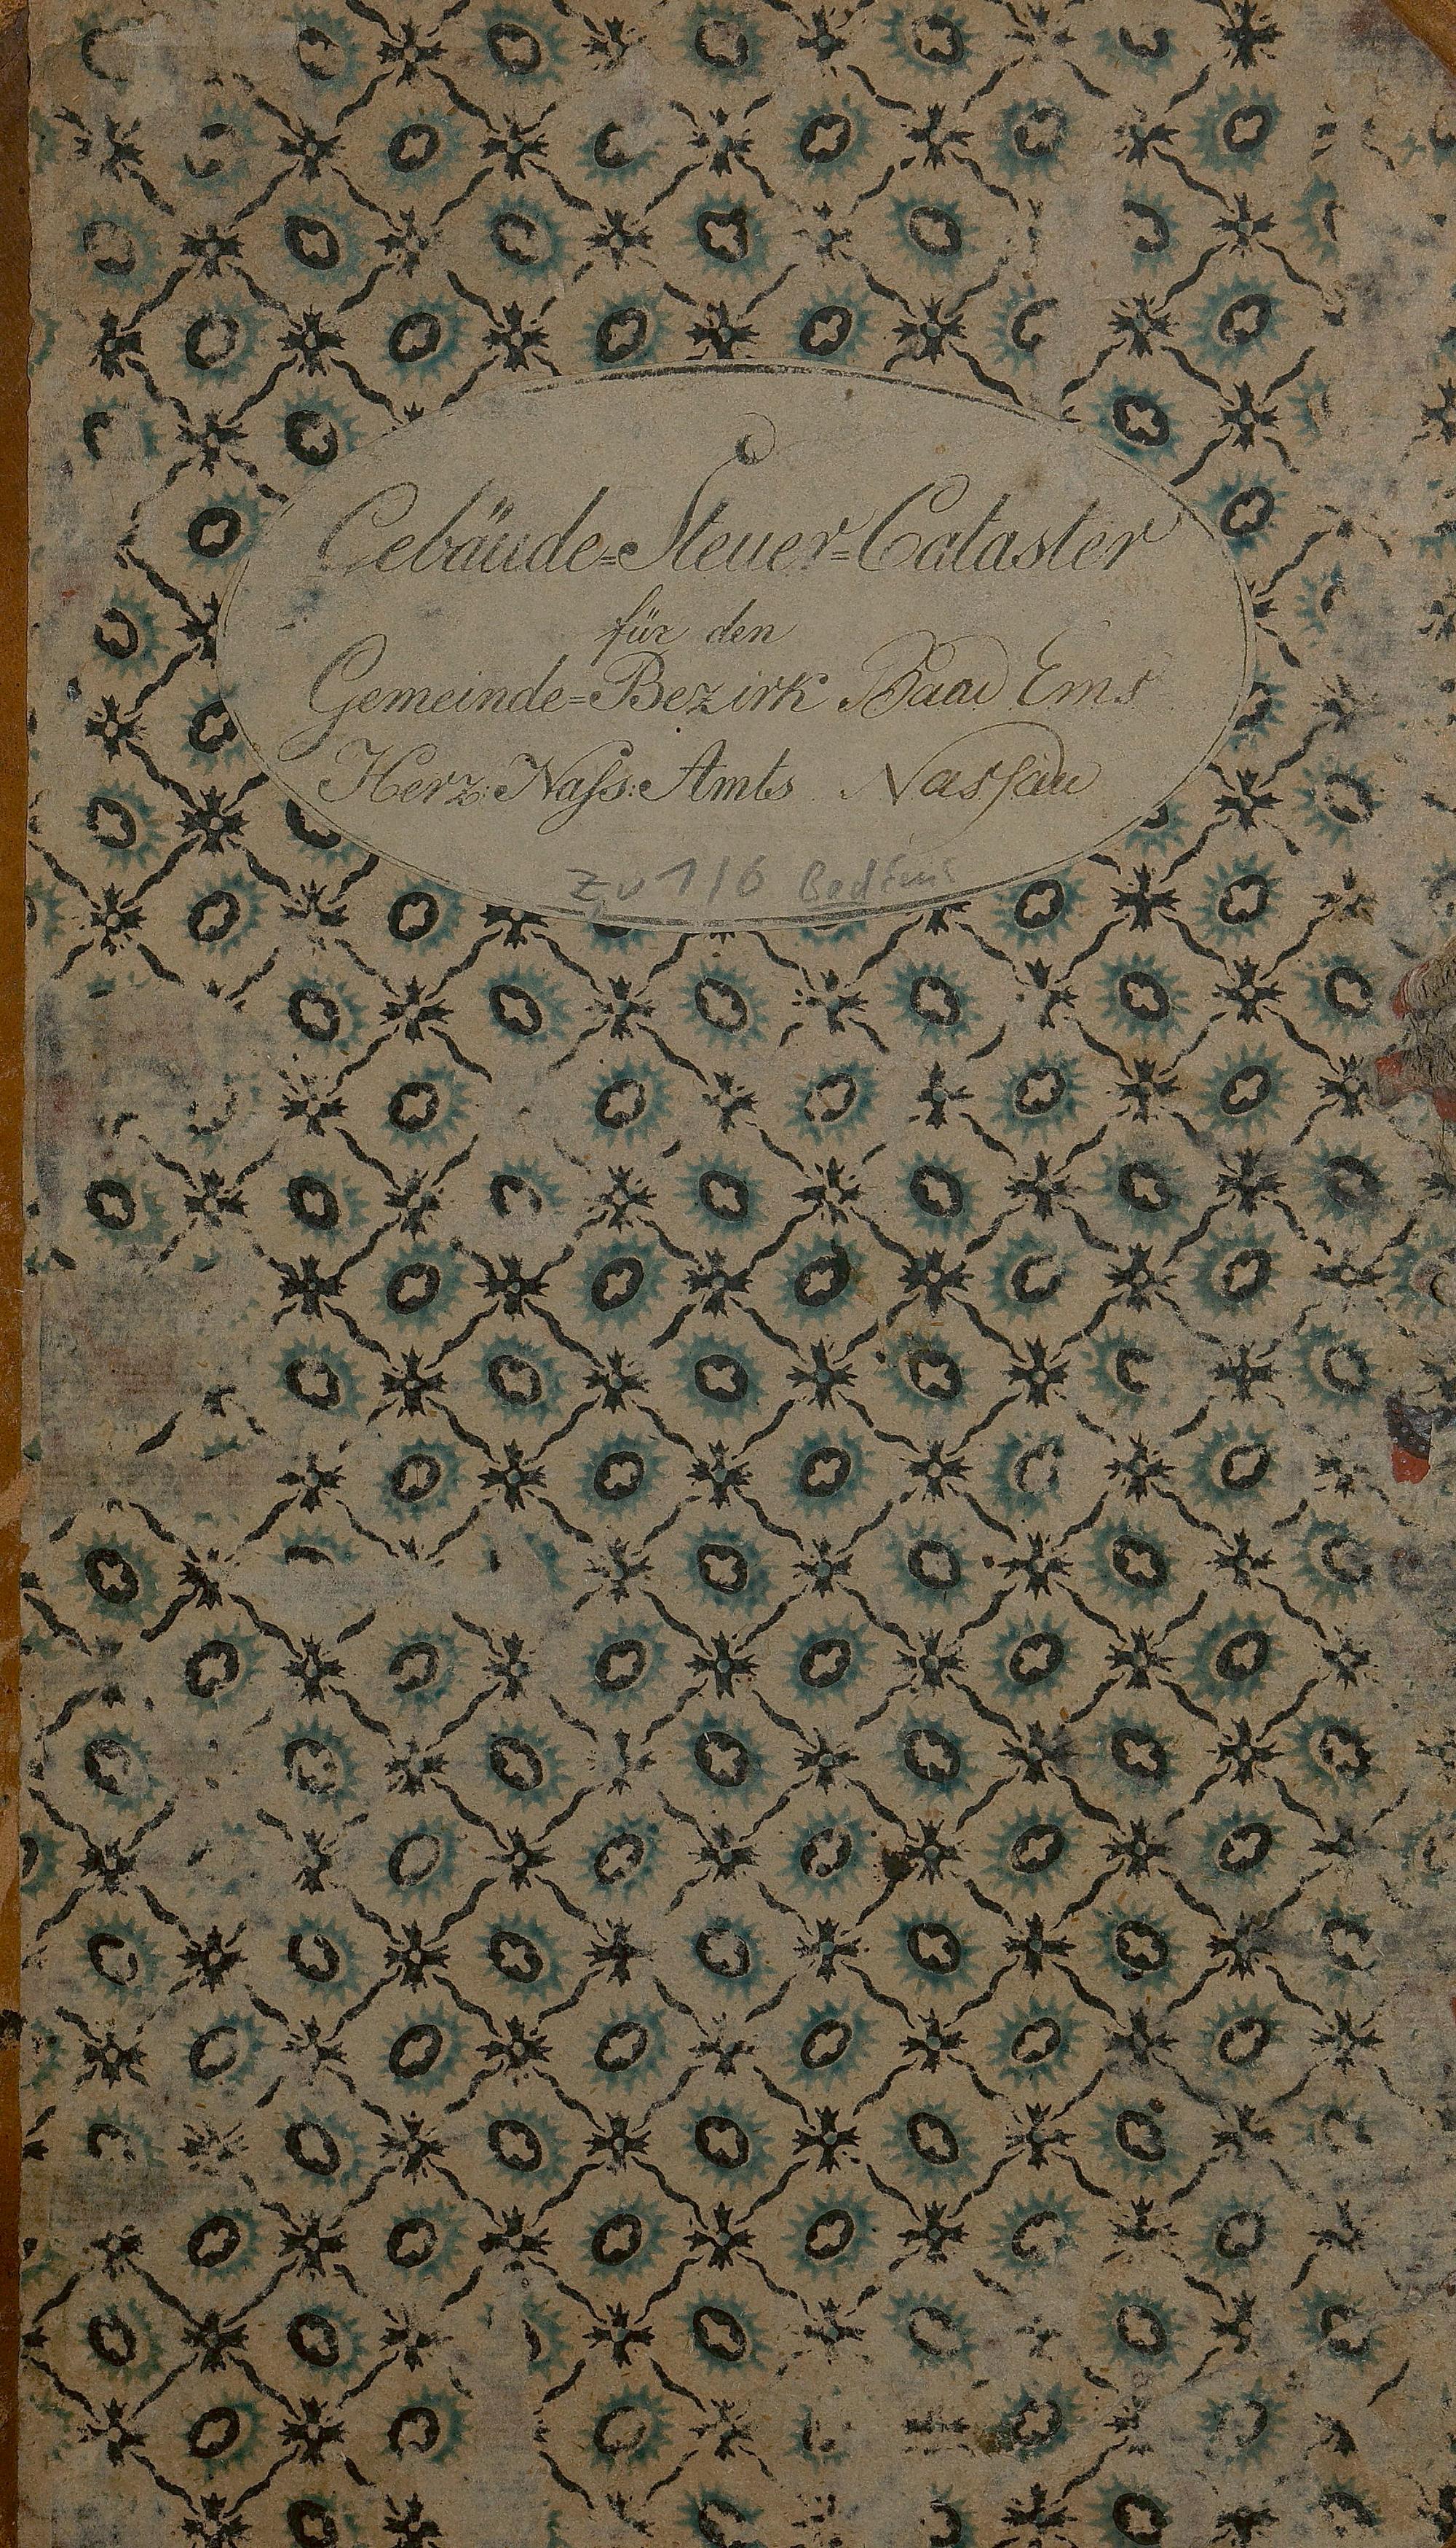 Gebäude=Steuer=Cataster
für den
Gemeinde=Bezirk Baad Ems
Herz: Naſs: Amts Nasſau
zu 1/6 Bad Ems